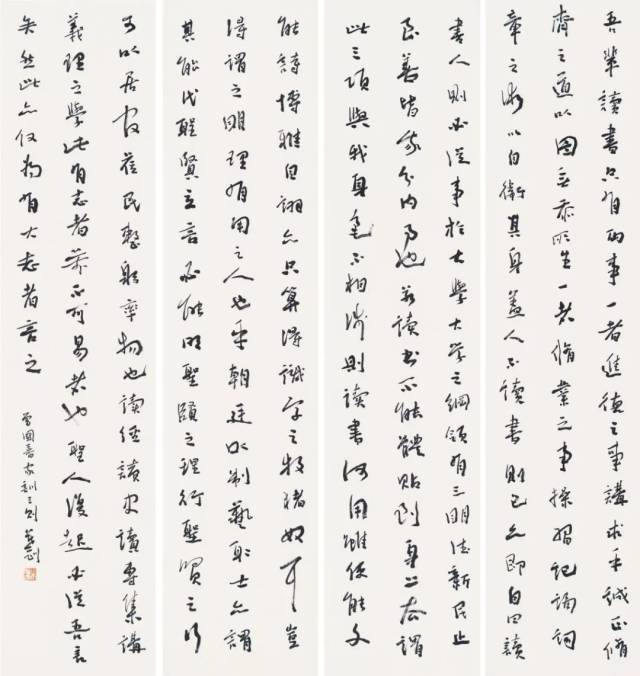 吾輩讀書只有兩事一者進德之事講求乎誠正脩
齊之道以圖無忝所生一者脩業之事操習記誦詞
章之術以自衛其身蓋人不讀書則已亦即自曰讀
書人則必從事於大學大學之綱領有三明德新民止
至善皆我分内事也若讀書不能體貼到身上去謂
此三項與我身毫不相涉則讀書何用雖使能文
能詩博雅自詡亦只算得識字之牧猪奴耳豈
得謂之明理有用之人也乎朝廷以制藝取士亦謂
其能代聖賢立言必能明聖賢之理行聖賢之行
可以居官莅民整躬率物也讀經讀史讀專集講
義理之學此有志者萬不可易者也聖人復起必從吾言
矣然此亦仅為有大志者言之
曾國藩家訓三則